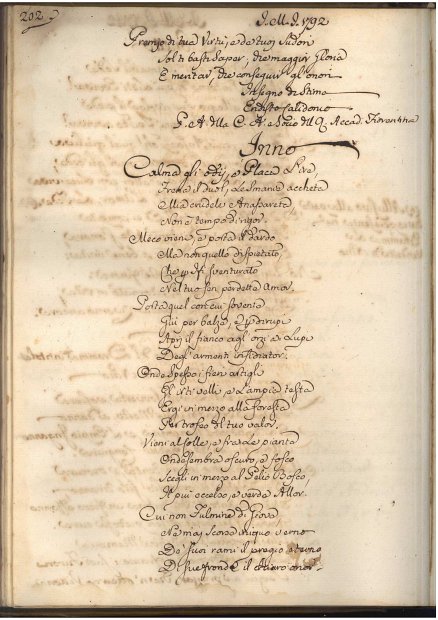 202.
J. M. J. 1792
Premio di tua Virtù, e de tuoi Sudori
Sol ti basti saper, che maggior Gloria
È meritar, che conseguir gl'onori
In segno di Stima
Calidonio
P. A. della C. A. e Socio del R. Accad. Fiorentina
Inno
Calma gli odij, e placa l'ire,
Frena il duol, le smanie accheta
Mia crudele Anapareta,
Non è tempo di rigor.
Meco vieni, e porta il dardo
Ma non quello dispietato,
Che sventurato
Nel tuo sen perdette Amor.
Porta quel con cui sovente
Qui per balze, e dirupi
Aprj il fianco agl'orsi, e Lupi
Degl'armenti insidiator.
Onde spesso i fieri artigli
E l'irte velli, e l'ampia testa
Ergi in mezzo alla foresta
Per trofeo del tuo valor.
Vieni al colle, e fra le piante
Onde sembra oscuro, e fosco
Scegli in mezzo al Bosco,
Il più eccelso, e verde Allor.
Cui non fulmine di Giove,
Nè mai scorza iniquo verno
De' suoi rami il pregio eterno
Di sue fronde il onor.